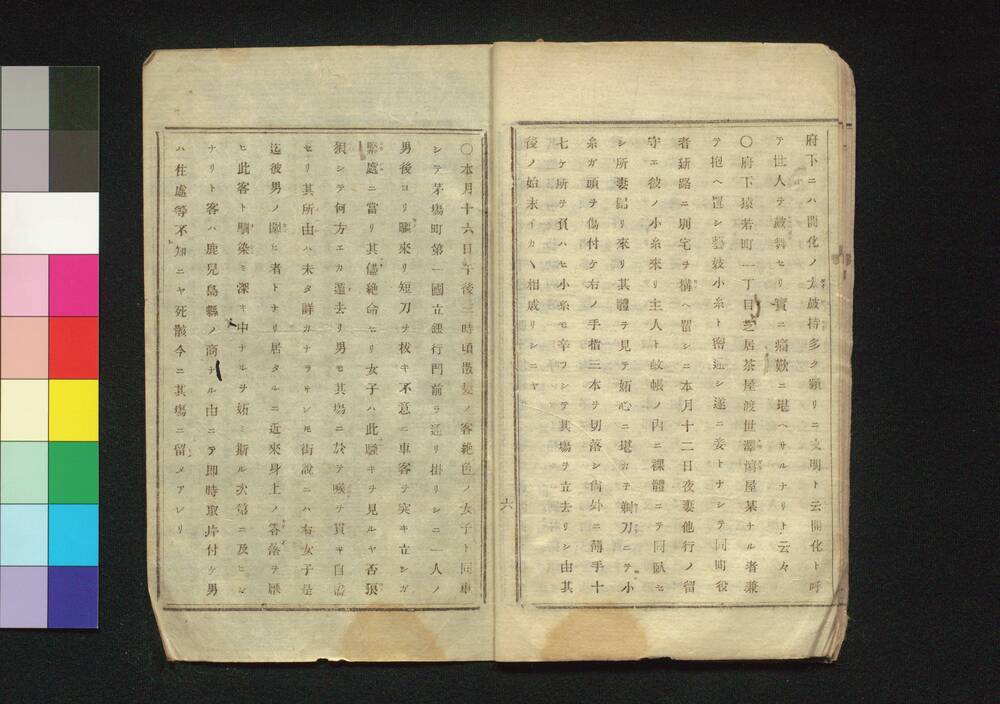 府下ニハ開化ノ太鼓持多ク頻リニ文明ト云開化ト呼
テ世人ヲ鼓舞セリ實ニ痛歎ニ堪ヘサルナリト云々
〇府下猿若町一丁目芝居茶屋渡世澤瀉屋某ナル者兼
テ抱ヘ置シ藝妓小糸ト密通シ遂ニ妾トナシテ同町役
者新路ニ別宅ヲ構ヘ置シニ本月十二日夜妻他行ノ留
守エ彼ノ小糸來リ主人ト蚊帳ノ内ニ裸體ニテ同臥セ
シ所妻歸リ來リ其體ヲ見テ妬心ニ堪カチ剃刀ニテ小
糸ガ頭ヲ傷付ケ右ノ手指三本ヲ切落シ尚外ニ薄手十
七ケ所ヲ負ハセ小糸モ辛フシテ其場ヲ立去リシ由其
後ノ始末イカヽ相成リシニヤ
六
〇本月十六日午後三時頃散髪ノ客絶色ノ女子ト同車
シテ茅場町第一國立銀行門前ヲ通リ掛リシニ一人ノ
男後ヨリ驅來リ短刀ヲ拔キ不意ニ車客ヲ突キ立シガ
緊處ニ當リ其儘絶命セリ女子ハ此騷キヲ見ルヤ否狼
狽シテ何方エカ迯去リ男モ其場ニ於テ喉ヲ貫キ自盡
セリ其所由ハ未タ詳カナラサレ𪜈街説ニハ右女子是
迄彼男ノ圍ヒ者トナリ居タルニ近來身上ノ零落ヲ厭
ヒ此客ト馴染ミ深キ中ナルヲ妬ミ斯ル次第ニ及ヒシ
ナリト客ハ鹿兒島縣ノ商ナル由ニテ即時取片付ケ男
ハ住處等不知ニヤ死骸今ニ其場ニ留メアレリ